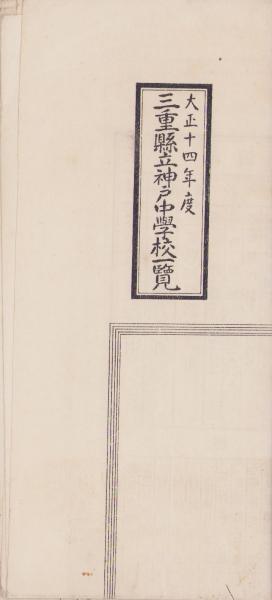 大正十四年度
三重縣立神戸中學校一覽